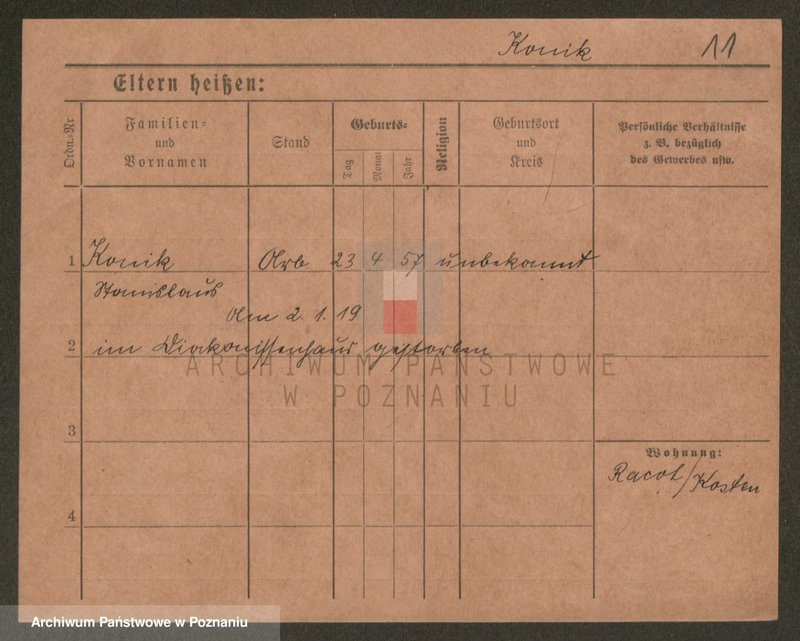 Konik 11
Eltern heißen:
Ordn.-Nr
Familien-
und
Vornamen
Stand
Geburts-
Tag
Monat
Jahr
Religion
Geburtsort
und
Kreis
Persönliche Verhältnisse
z. B. bezüglich
des Gewerbes usw.
1 Konik Arb. 23 4 57 unbekannt
Stanislaus
Am 2. 1. 19
2 im Diakonissenhaus gestorben
ARCHIWUM PAŃSTWOWE
W POZNANIU
3
Wohnung:
Racot/Kosten
4
Archiwum Państwowe w Poznaniu